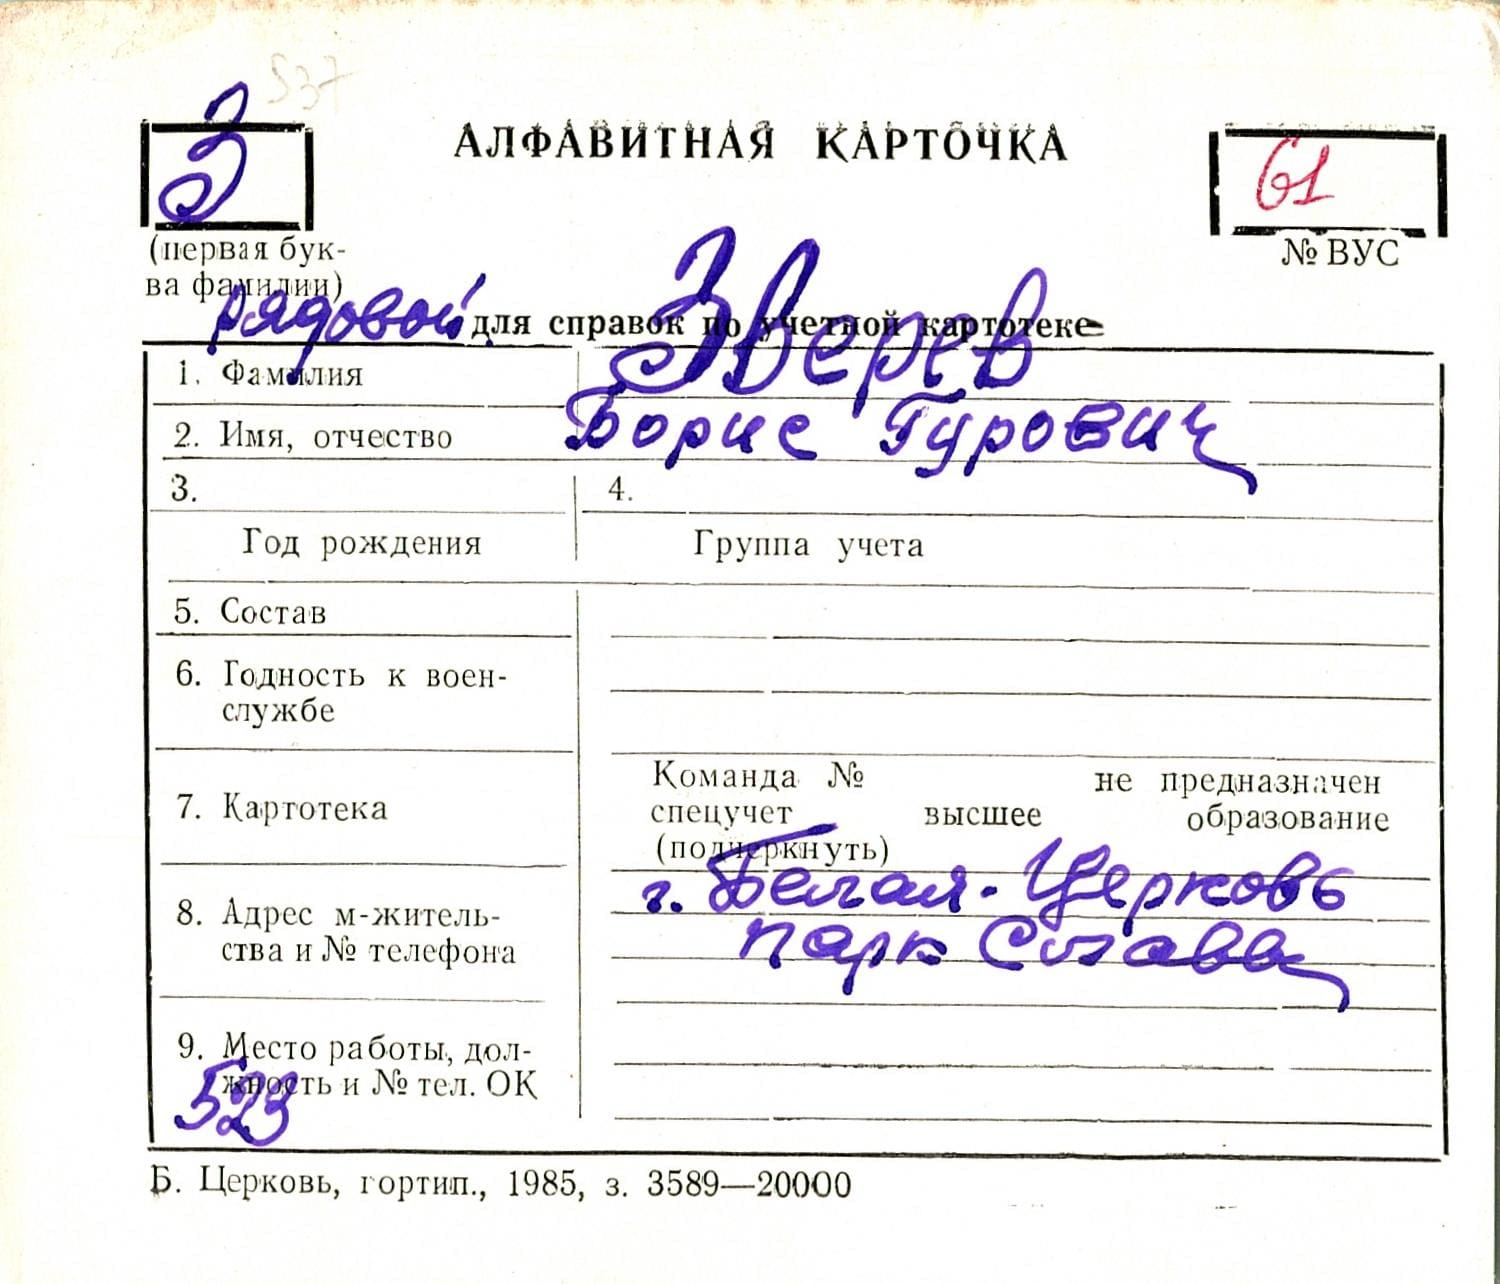 537
З
АЛФАВИТНАЯ КАРТОЧКА
61
(первая бук-
ва фамилии)
№ ВУС
рядовой для справок по учетной картотеке
1. Фамилия Зверев
2. Имя, отчество Борис Гурович
3. 4.
Год рождения Группа учета
5. Состав
6. Годность к воен-
службе
7. Картотека
Команда № не предназначен
спецучет высшее образование
(подчеркнуть)
8. Адрес м-житель-
ства и № телефона
г. Белая-Церковь
парк Славы
9. Место работы, дол-
жность и № тел. ОК
523
Б. Церковь, гортип., 1985, з. 3589—20000